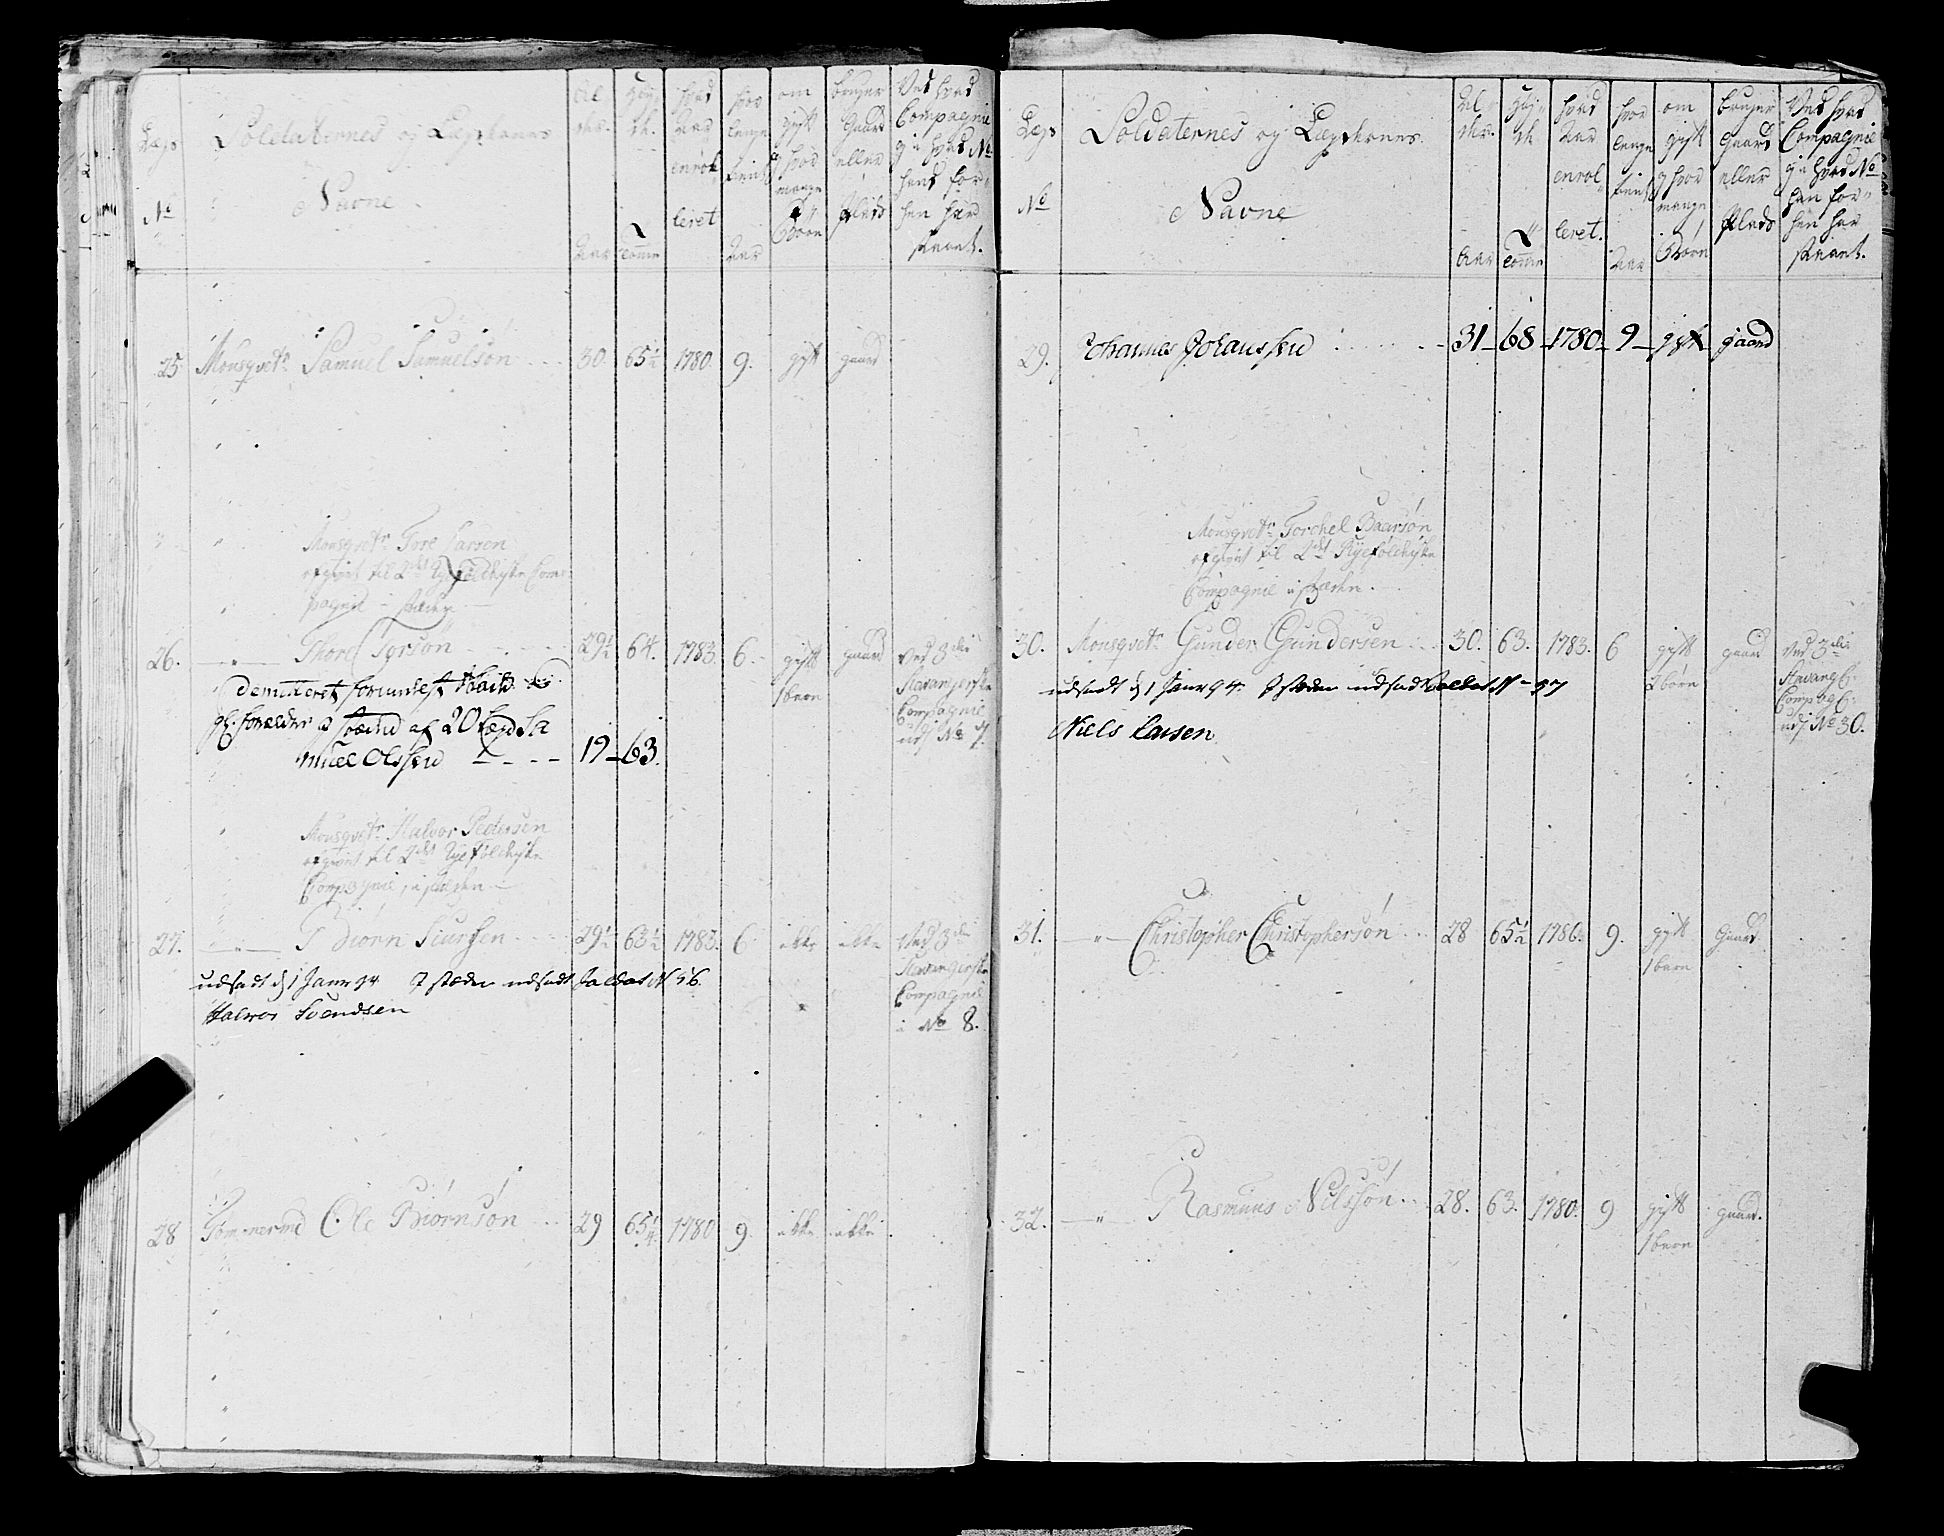 Lægs
No
Soldaternes og Lægdernes
Navne
Al
der.
Aar
Høy
de
Tomme
hvad
Aar
enrol
leret
hvor
lenge
tient
Aar
om
gift
og hvor
mange
Børn
bruger
Gaard
eller
Plads
Ved hvad
Compagnie
og i hvad No
hand for
hen har
staaet.
25 Mousqvetr Samuel Samuelsøn 30 65½ 1780. 9. gift gaard
Mousqvetr Tore Larsen
afgivet til 2det Ryefølchyske Com
pagnie i stæden
26. Thore Torsøn 29½ 64. 1783. 6. gift gaard Ved 3die
1 barn Stavangerske
Compagnie
udj No 7.
Demitteret formedelst
gl. forældre I stæden af 20 Lægd Sa
muel Olssen 19 63.
Mousqvetr Halvor Pedersen
afgivet til 2det Ryefølchyske
Compagnie, i stæden
27. Biørn Siurssen 29½ 63½ 1783. 6 ikke ikke Ved 3die
Stavangerske
Compagnie
i No 8.
udsadt d 1 Janr 94 I stæden indsadt Soldat N 56
Halvor Svendsen
28 Tømmermd Ole Biørnsøn 29 65¼ 1780 9. ikke ikke
Lægs
No
Soldaternes og Lægdernes
Navne
Al
der.
Aar
Høy
de
Tomme
hvad
Aar
enrol
leret.
hvor
lenge
tient
Aar
om
gift
og hvor
mange
Børn
bruger
Gaard
eller
Plads
Ved hvad
Compagnie
og i hvad No
han for
hen har
staaet.
29. Johannes Johanssen 31 68 1780 9 gift gaard
Mousqvetr Torchel Baarsøn
afgivet til 2det Ryefølchyske
Compagnie i stæden.
30. Mousqvetr Gunder Gundersen 30. 63. 1783. 6 gift gaard Ved 3die
2 børn Stavang:
Compag:
udj No 30.
udsadt d 1 Janr 94. I stæden indsadt Soldat N 97
Niels Larsen
31. Christopher Christophersøn 28 65½ 1780. 9. gift Gaard
1 barn
32. Rasmus Nilssøn 28. 63. 1780. 9 gift gaard.
1 barn